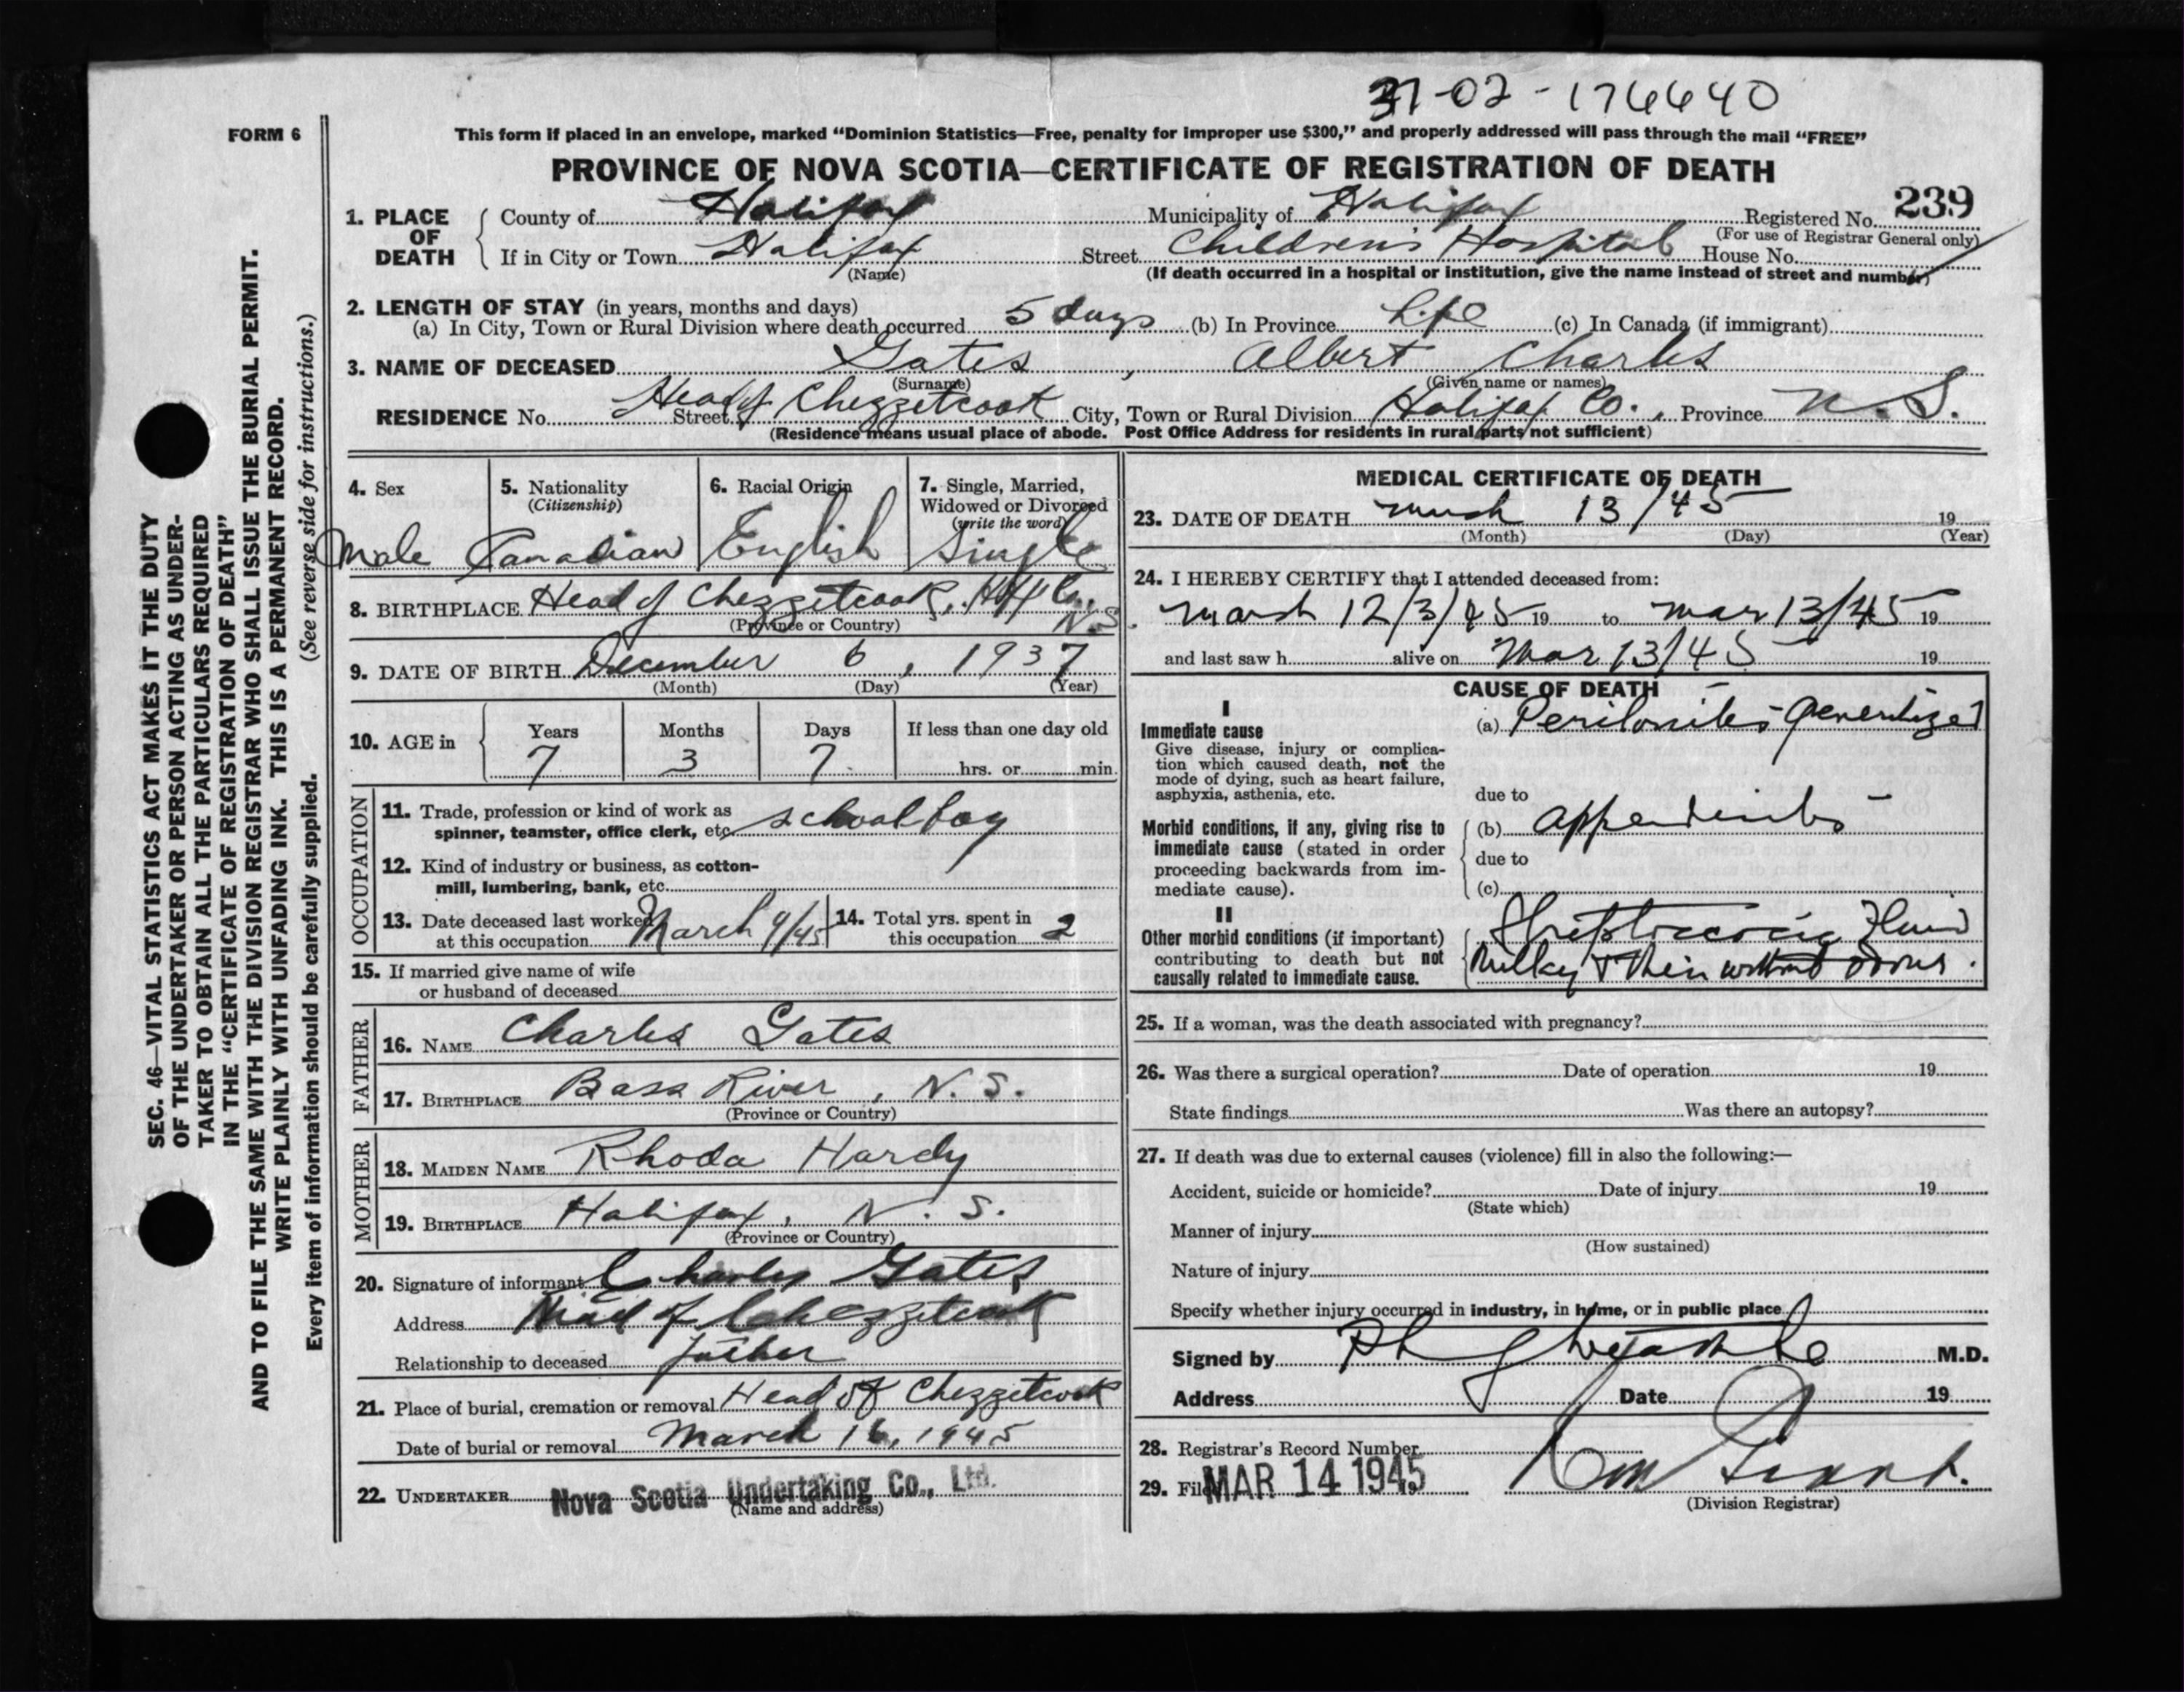 31-02-176640
FORM 6
This form if placed in an envelope, marked “Dominion Statistics—Free, penalty for improper use $300,” and properly addressed will pass through the mail “FREE”
PROVINCE OF NOVA SCOTIA—CERTIFICATE OF REGISTRATION OF DEATH
239
1. PLACE OF DEATH
County of Halifax Municipality of Halifax Registered No.
(For use of Registrar General only)
If in City or Town Halifax Street Children's Hospital House No.
(Name) (If death occurred in a hospital or institution, give the name instead of street and number)
2. LENGTH OF STAY (in years, months and days)
(a) In City, Town or Rural Division where death occurred 5 days (b) In Province Life (c) In Canada (if immigrant)
3. NAME OF DECEASED Gates, Albert Charles
(Surname) (Given name or names)
RESIDENCE No. Street Head of Chezzetcook City, Town or Rural Division Halifax Co., Province N. S.
(Residence means usual place of abode. Post Office Address for residents in rural parts not sufficient)
4. Sex
Male
5. Nationality
(Citizenship)
Canadian
6. Racial Origin
English
7. Single, Married,
Widowed or Divorced
(write the word)
Single
8. BIRTHPLACE Head of Chezzetcook, Hfx Co. N.S.
(Province or Country)
9. DATE OF BIRTH December 6, 1937
(Month) (Day) (Year)
10. AGE in
Years Months Days If less than one day old
7 3 7 hrs. or min.
OCCUPATION
11. Trade, profession or kind of work as
spinner, teamster, office clerk, etc. schoolboy
12. Kind of industry or business, as cotton-
mill, lumbering, bank, etc.
13. Date deceased last worked
at this occupation March 9/45
14. Total yrs. spent in
this occupation 2
15. If married give name of wife
or husband of deceased
FATHER
16. NAME Charles Gates
17. BIRTHPLACE Bass River, N. S.
(Province or Country)
MOTHER
18. MAIDEN NAME Rhoda Hardy
19. BIRTHPLACE Halifax, N. S.
(Province or Country)
20. Signature of informant Charles Gates
Address Head of Chezzetcook
Relationship to deceased Father
21. Place of burial, cremation or removal Head of Chezzetcook
Date of burial or removal March 16, 1945
22. UNDERTAKER Nova Scotia Undertaking Co., Ltd.
(Name and address)
MEDICAL CERTIFICATE OF DEATH
23. DATE OF DEATH March 13/45 19
(Month) (Day) (Year)
24. I HEREBY CERTIFY that I attended deceased from:
March 12/3/45 19 to Mar 13/45 19
and last saw h alive on Mar 13/45 19
CAUSE OF DEATH
I
Immediate cause
Give disease, injury or complica-
tion which caused death, not the
mode of dying, such as heart failure,
asphyxia, asthenia, etc.
(a) Peritonitis - Generalized
due to
Morbid conditions, if any, giving rise to
immediate cause (stated in order
proceeding backwards from im-
mediate cause).
(b) appendicitis
due to
(c)
II
Other morbid conditions (if important)
contributing to death but not
causally related to immediate cause.
Streptococcic Fluid
Milky & thin without odour.
25. If a woman, was the death associated with pregnancy?
26. Was there a surgical operation? Date of operation 19
State findings Was there an autopsy?
27. If death was due to external causes (violence) fill in also the following:—
Accident, suicide or homicide? Date of injury 19
(State which)
Manner of injury
(How sustained)
Nature of injury
Specify whether injury occurred in industry, in home, or in public place
Signed by M.D.
Address Date 19
28. Registrar's Record Number
29. Filed MAR 14 1945
(Division Registrar)
SEC. 46—VITAL STATISTICS ACT MAKES IT THE DUTY
OF THE UNDERTAKER OR PERSON ACTING AS UNDER-
TAKER TO OBTAIN ALL THE PARTICULARS REQUIRED
IN THE “CERTIFICATE OF REGISTRATION OF DEATH”
AND TO FILE THE SAME WITH THE DIVISION REGISTRAR WHO SHALL ISSUE THE BURIAL PERMIT.
WRITE PLAINLY WITH UNFADING INK. THIS IS A PERMANENT RECORD.
Every item of information should be carefully supplied. (See reverse side for instructions.)